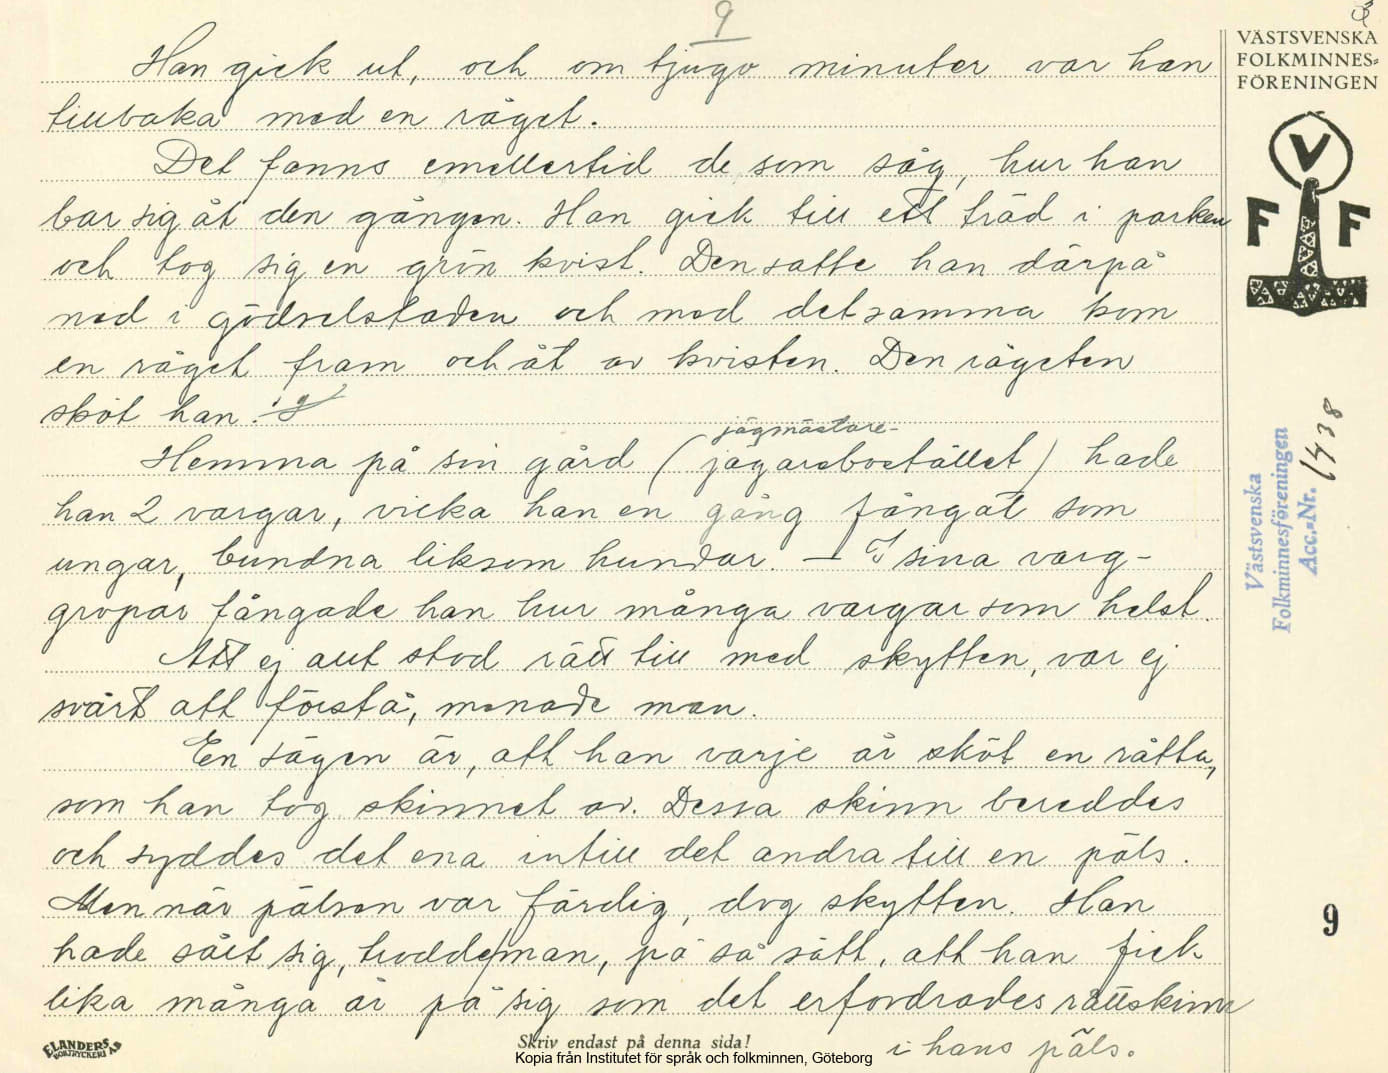 9
3
VÄSTSVENSKA
FOLKMINNES=
FÖRENINGEN
V
F F
Han gick ut, och om tjugo minuter var han
tillbaka med en råget.
Det fanns emellertid de som såg, hur han
bar sig åt den gången. Han gick till ett träd i parken
och tog sig en grön kvist. Den satte han därpå
ned i gödselstaden och med detsamma kom
en råget fram och åt av kvisten. Den rågeten
sköt han.
jägmästare-
Hemma på sin gård (jägarebostället) hade
han 2 vargar, vicka han en gång fångat som
ungar, bundna liksom hundar. — I sina varg-
gropar fångade han hur många vargar som helst.
Att ej allt stod rätt till med skytten, var ej
svårt att förstå, menade man.
En sägen är, att han varje år sköt en råtta,
som han tog skinnet av. Dessa skinn bereddes
och syddes det ena intill det andra till en päls.
Men när pälsen var färdig, dog skytten. Han
hade sålt sig, trodde man, på så sätt, att han fick
lika många år på sig som det erfordrades råttskinn
i hans päls.
Västsvenska
Folkminnesföreningen
Acc.=Nr. 1438
9
ELANDERS
BOKTRYCKERI AB
Skriv endast på denna sida!
Kopia från Institutet för språk och folkminnen, Göteborg